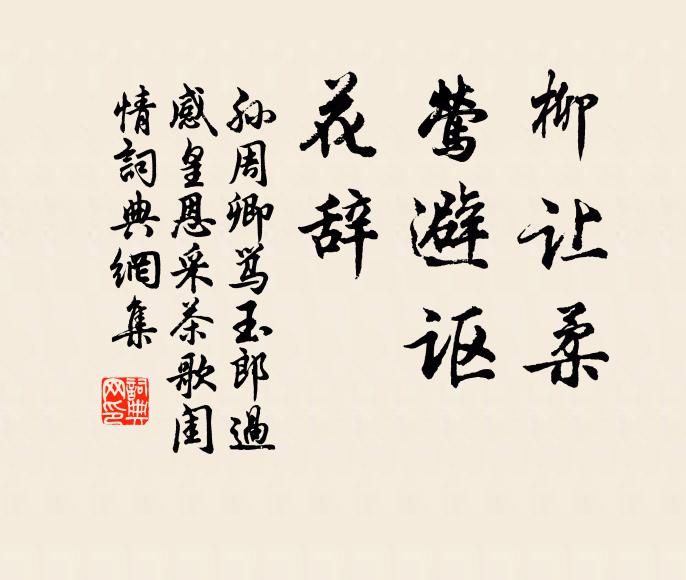 柳让柔
莺避讴
花辞
孙周卿骂玉郎过
感皇恩采茶歌闺
情詞典網集
詞典
网印